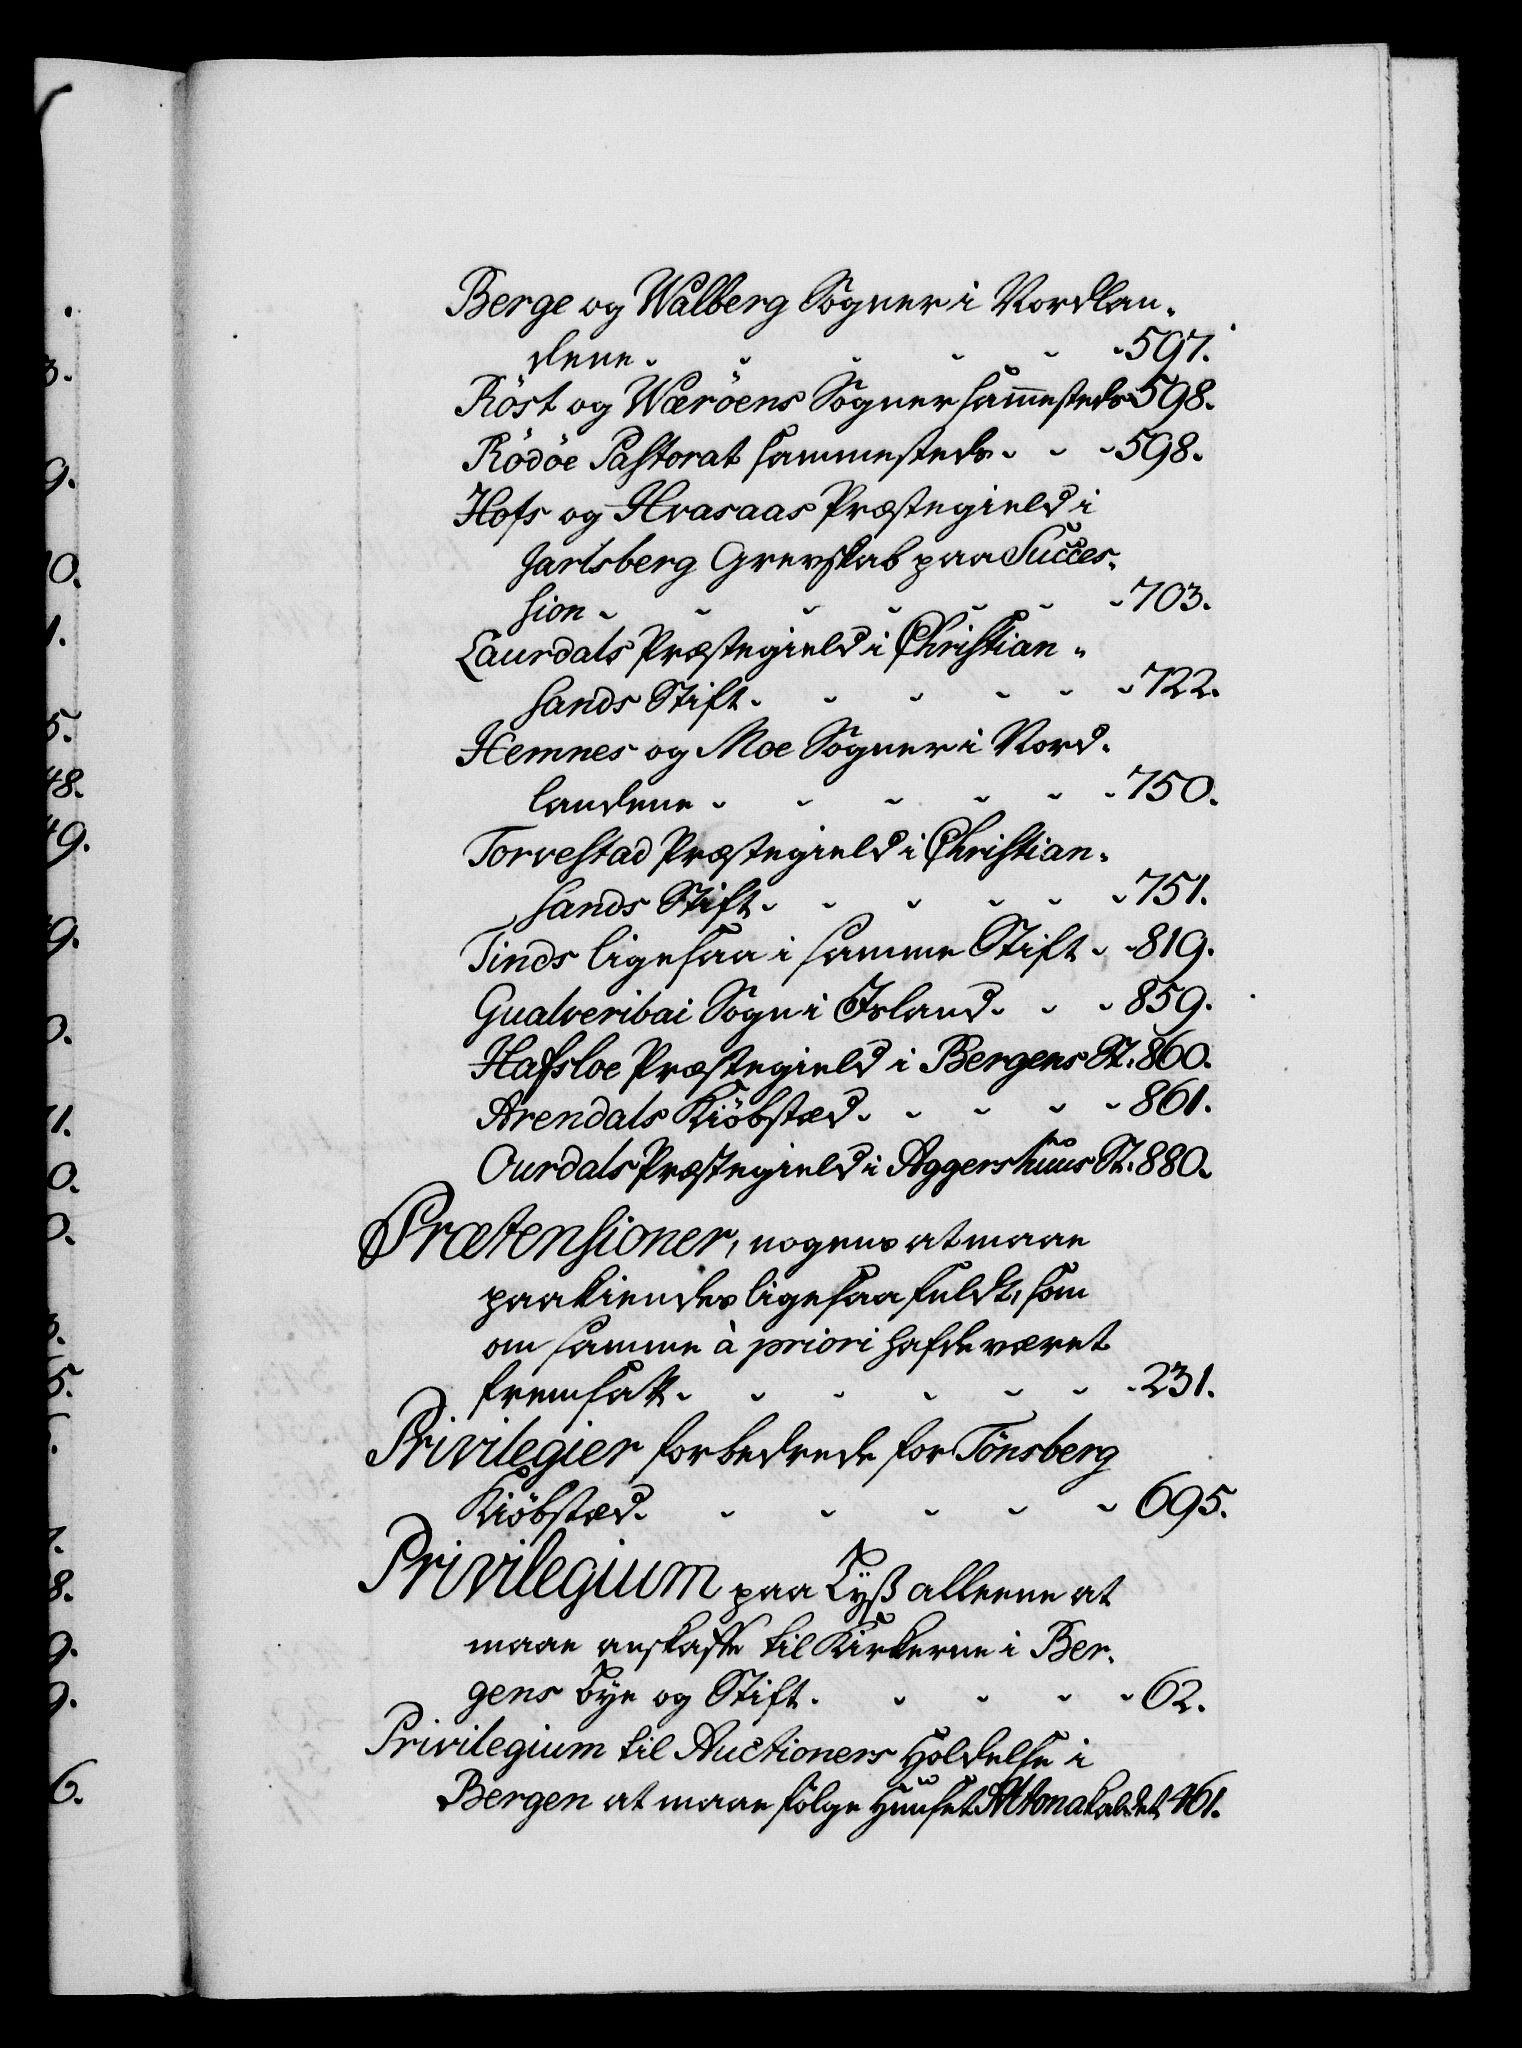 Berge og Walberg Sogner i Nordlan-
dene - - - - - - 597.
Röst og Wæröens Sogner sam̅esteds 598.
Rödöe Pastorat sammesteds - - - 598.
Hofs og Hvasaas Præstegield i
Jarlsberg Grevskab paa Succes-
sion - - - - - - - 703.
Laurdals Præstegield i Christian-
sands Stift - - - - - - 722.
Hemnes og Moe Sogner i Nord-
landene - - - - - - 750.
Torvestad Præstegield i Christian-
sands Stift - - - - - - 751.
Tinds ligesaa i samme Stift - - 819.
Gualveribai Sogn i Island - - - 859.
Hafsloe Præstegield i Bergens St. 860.
Arendals Kiöbstæd - - - - - 861.
Ourdals Præstegield i Aggershuus St. 880.
Prætensioner, nogens at maae
paakiendes ligesaa fuldt, som
om samme à priori hafde været
fremsatt - - - - - - 231.
Privilegier forbedrede for Tönsberg
Kiöbstæd - - - - - 695.
Privilegium paa Lyß alleene at
maae anskaffe til Kirkerne i Ber-
gens Bye og Stift - - - - - 62.
Privilegium til Auctioners Holdelse i
Bergen at maae følge Huuset Altona kaldet 461.